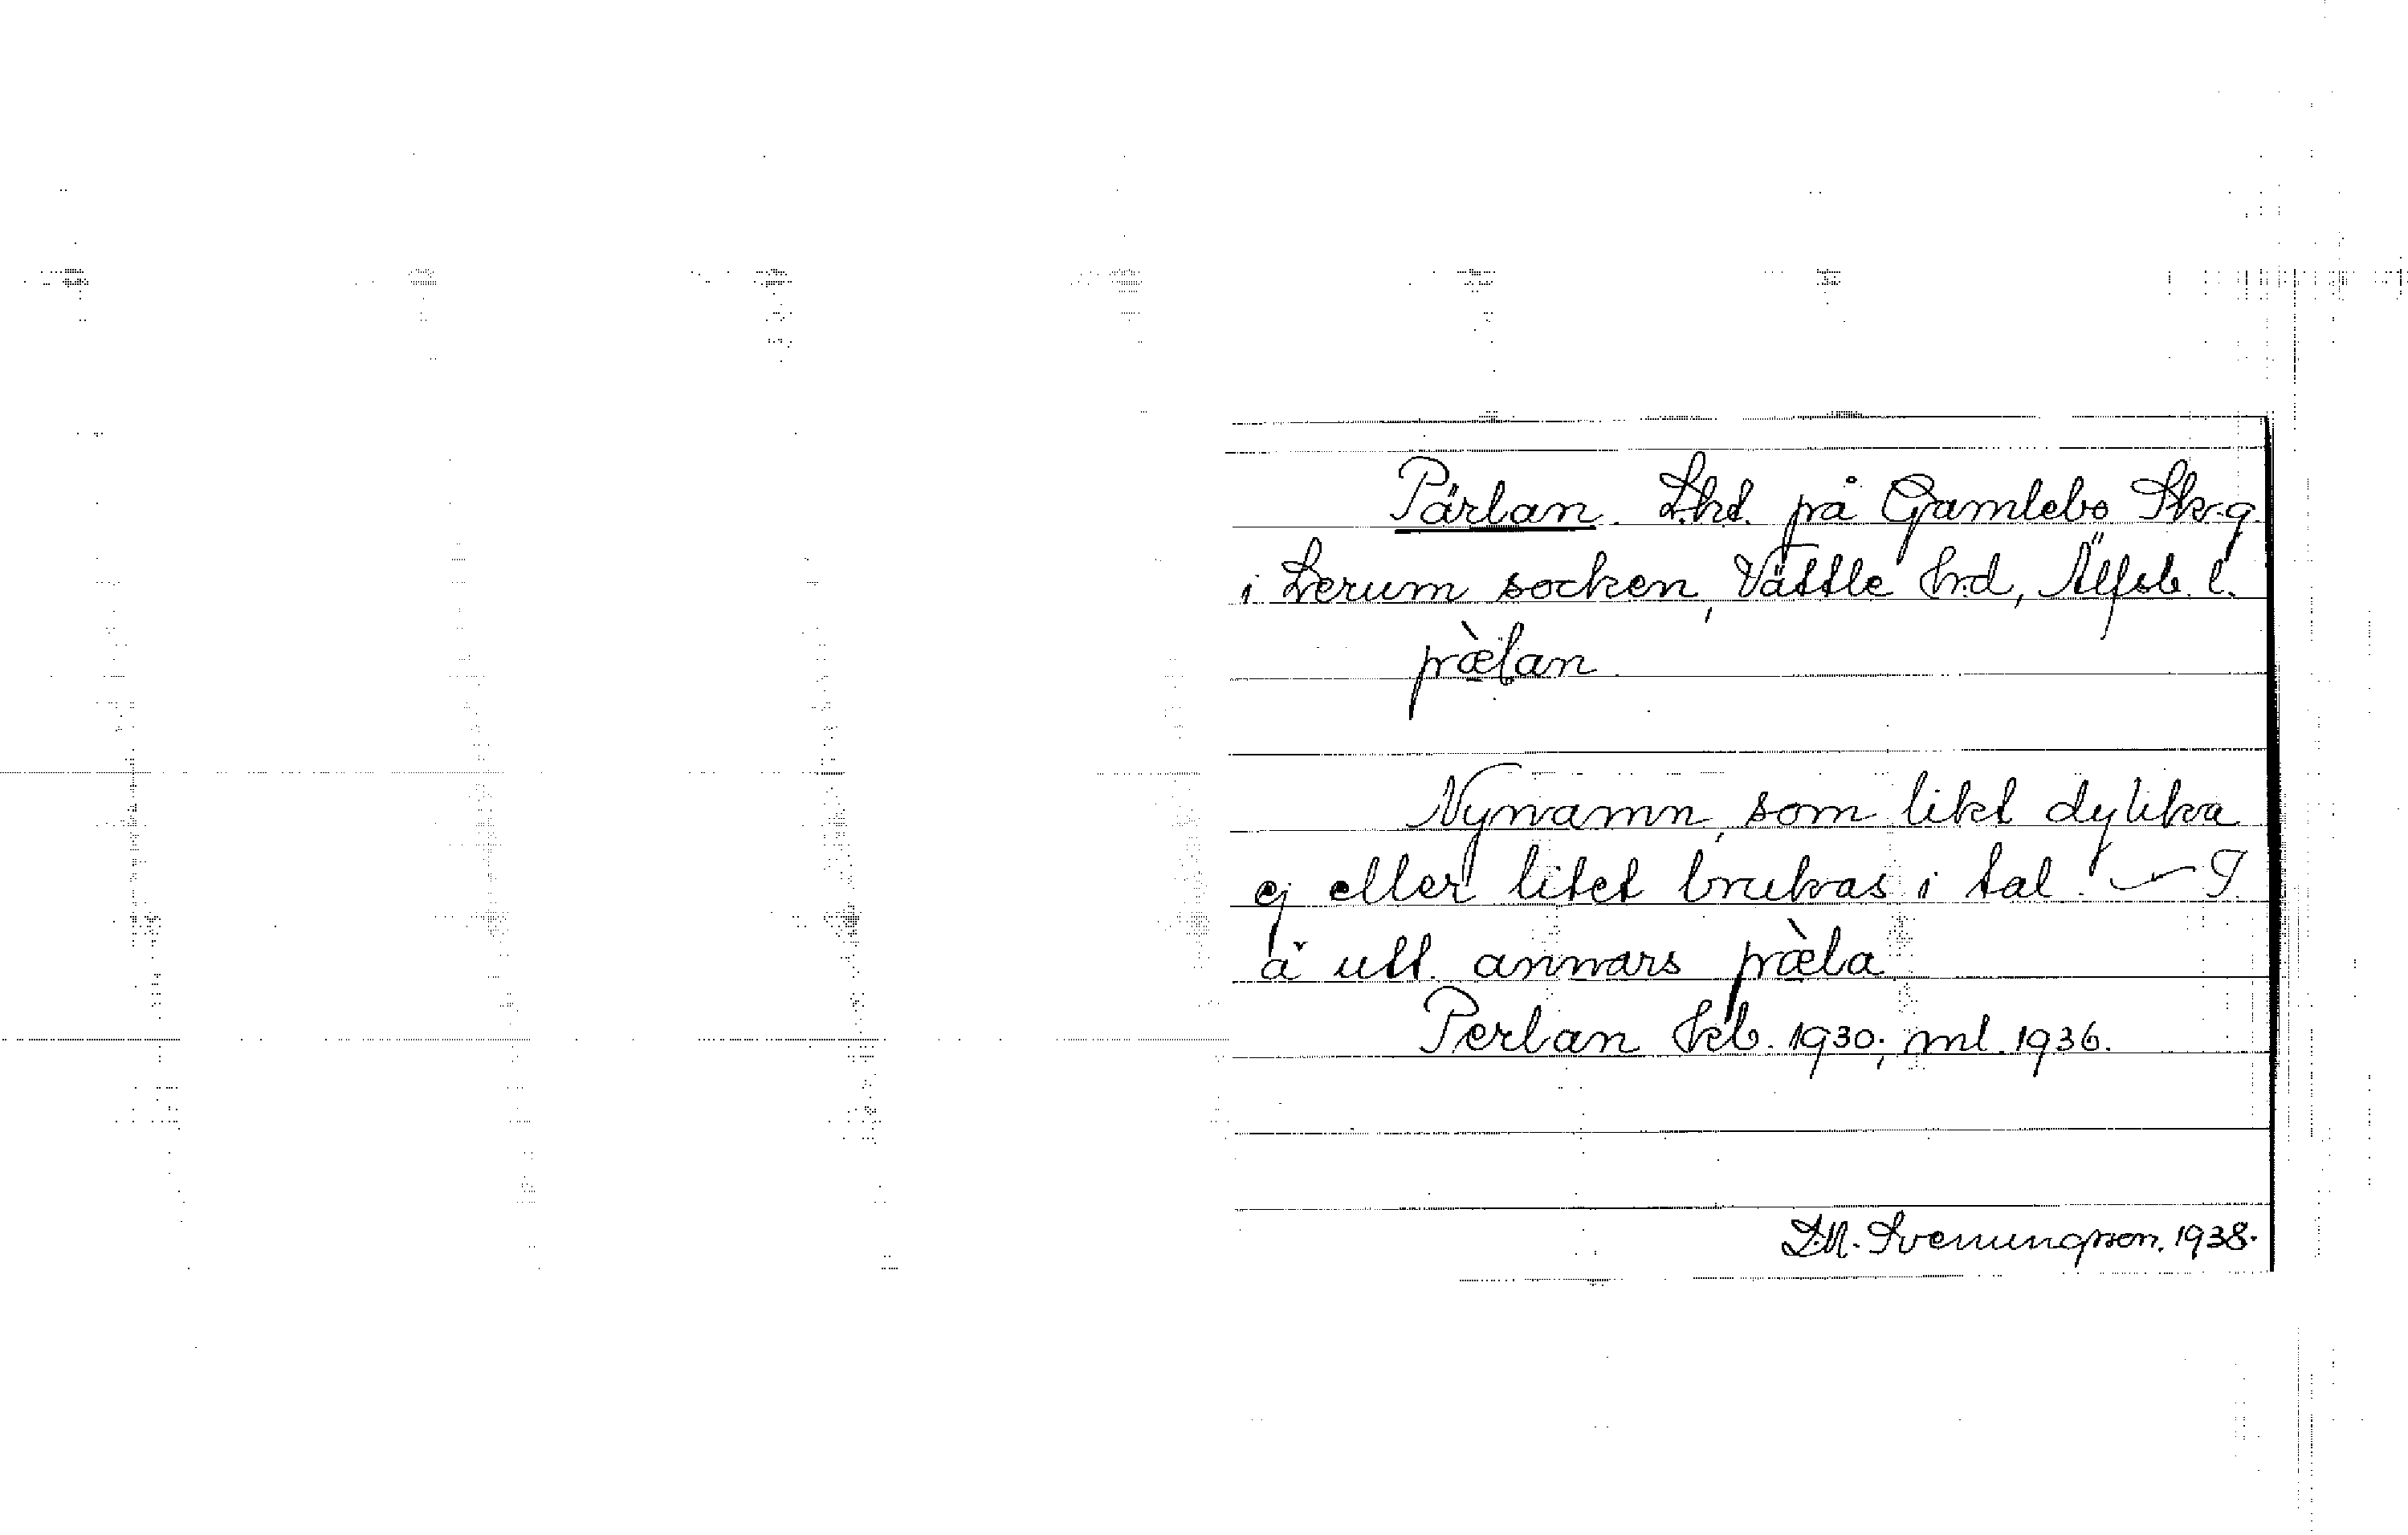 Pärlan. Lht. på Gamlebo Skr.g.
i Lerum socken, Vättle hrd, Älfsb. l.
pæ̀lan
Nynamn, som likt dylika
ej eller litet brukas i tal. — I
ä utt. annars pæ̀la
Perlan Jrb. 1930; ml. 1936.
D.M. Svenungsson. 1938.